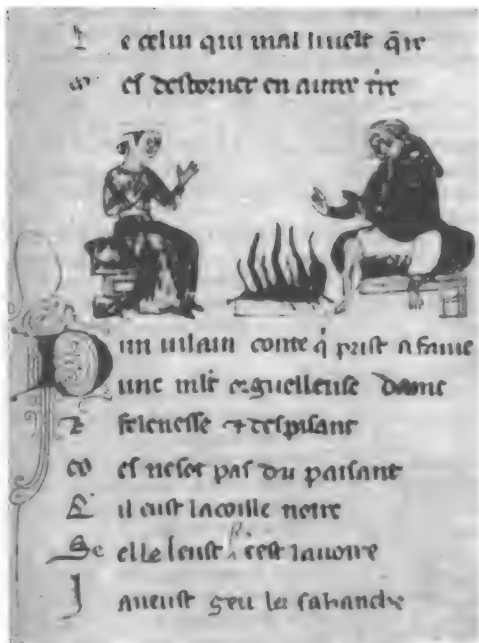 D e celui qui mal livelt q̃re
M es destorner en autre t̃re
D un vilain conte q̇ prist a fame
U ne mlt orguelleuse dame
E felenesse ⁊ despisant
M es ne sot pas du paisant
K il eust la coille noire
Se elle leust cest la voire
J a neust geu les sa hanche